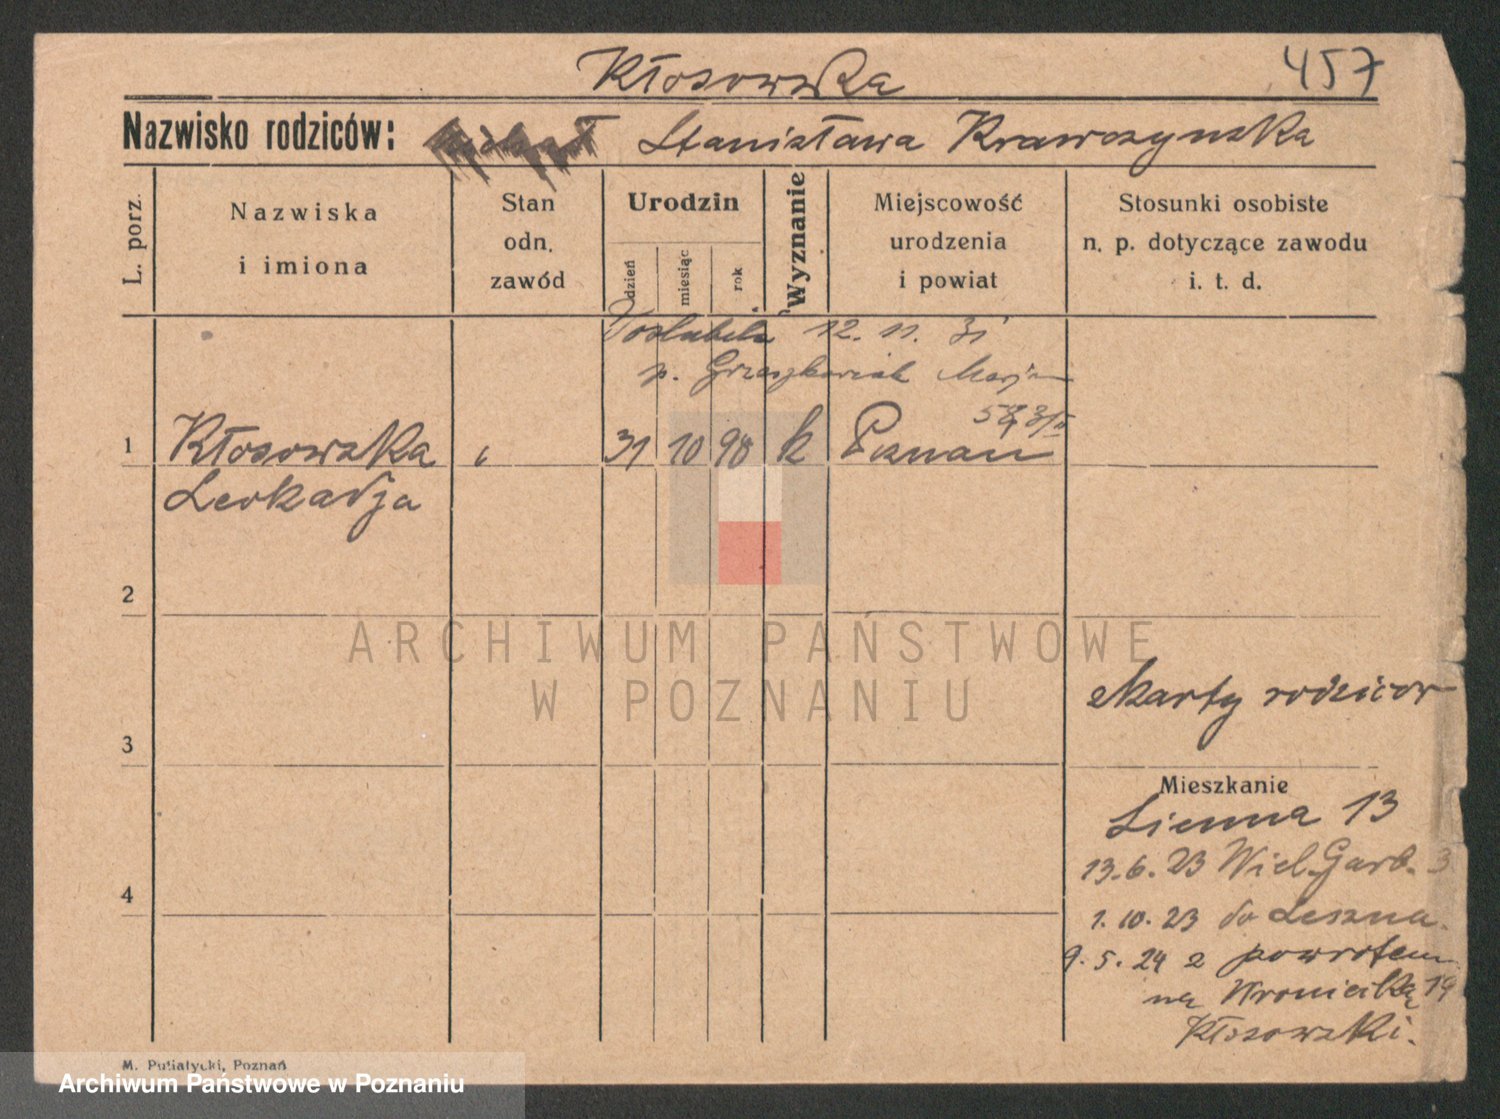 Kłosowska
457
Nazwisko rodziców: Stanisława Krawczynska
L. porz.
Nazwiska
i imiona
Stan
odn.
zawód
Urodzin
dzień
miesiąc
rok
Wyznanie
Miejscowość
urodzenia
i powiat
Stosunki osobiste
n. p. dotyczące zawodu
i. t. d.
12. 11. 31
p. Grzeszkowiak Marjan
1 Kłosowska 31 10 90 k Poznań
Leokadja
2
3
4
z karty rodziców
Mieszkanie
Sienna 13
13. 6. 23 Wiel. Garb. 3
1. 10. 23 do Leszna.
9. 5. 24 z powrotem
na Wroniecką 19
Kłosowski.
M. Putiatycki, Poznań
ARCHIWUM PAŃSTWOWE
W POZNANIU
Archiwum Państwowe w Poznaniu